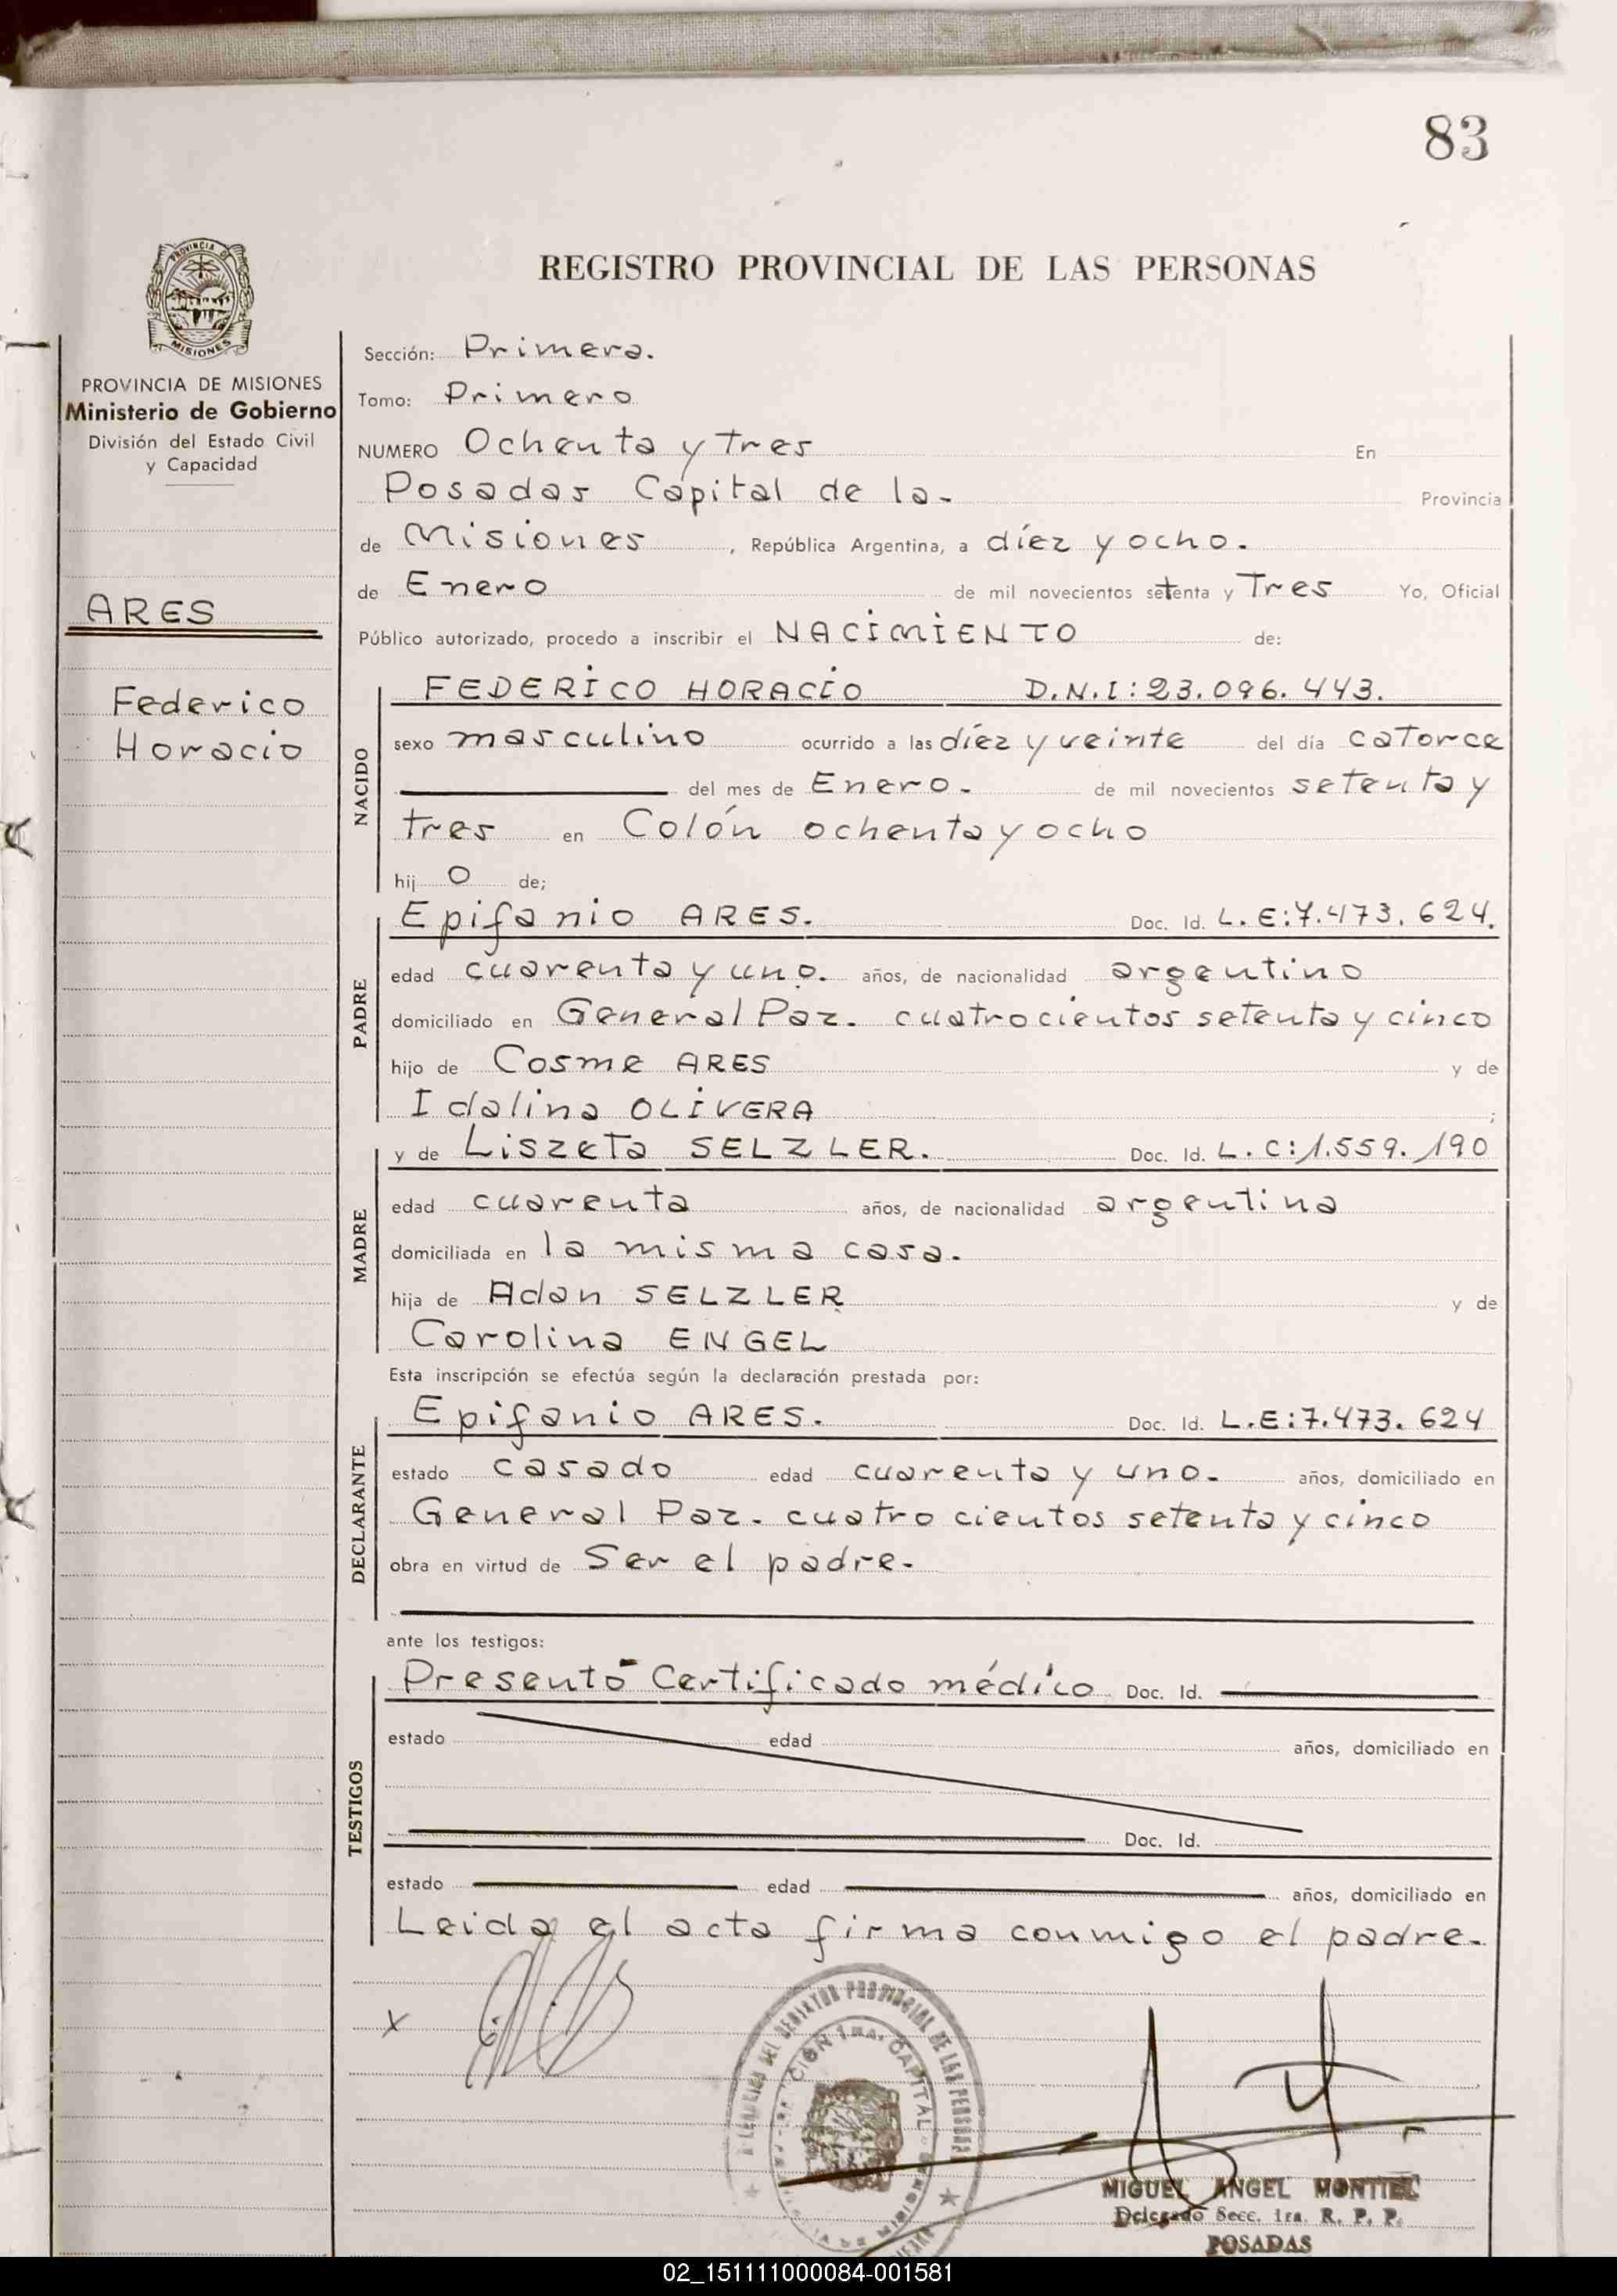 83
REGISTRO PROVINCIAL DE LAS PERSONAS
PROVINCIA DE MISIONES
PROVINCIA DE MISIONES
Ministerio de Gobierno
División del Estado Civil
y Capacidad
ARES
Federico
Horacio
Sección: Primera.
Tomo: Primero
NUMERO Ochenta y Tres En
Posadas Capital de la- Provincia
de Misiones , República Argentina, a díez y ocho.
de Enero de mil novecientos setenta y Tres Yo, Oficial
Público autorizado, procedo a inscribir el NACIMIENTO de:
NACIDO
FEDERICO HORACIO D.N.I: 23.096.443.
sexo masculino ocurrido a las díez y veinte del día catorce
del mes de Enero. de mil novecientos setenta y
tres en Colón ochenta y ocho
hij o de;
PADRE
Epifanio ARES. Doc. Id. L.E:7.473.624.
edad cuarenta y uno. años, de nacionalidad argentino
domiciliado en General Paz. cuatrocientos setenta y cinco
hijo de Cosme ARES y de
Idalina OLIVERA ;
MADRE
y de Liszeta SELZLER. Doc. Id. L.C:1.559.190
edad cuarenta años, de nacionalidad argentina
domiciliada en la misma casa.
hija de Adan SELZLER y de
Carolina ENGEL
Esta inscripción se efectúa según la declaración prestada por:
DECLARANTE
Epifanio ARES. Doc. Id. L.E:7.473.624
estado casado edad cuarenta y uno. años, domiciliado en
General Paz. cuatro cientos setenta y cinco
obra en virtud de Ser el padre.
ante los testigos:
TESTIGOS
Presentó Certificado médico Doc. Id.
estado edad años, domiciliado en
Doc. Id.
estado edad años, domiciliado en
Leida el acta firma conmigo el padre.
X
PROVINCIAL DE LAS PERSONAS
1ra. CAPITAL
MIGUEL ANGEL MONTIEL
Delegado Secc. 1ra. R. P. P.
POSADAS
02_151111000084-001581